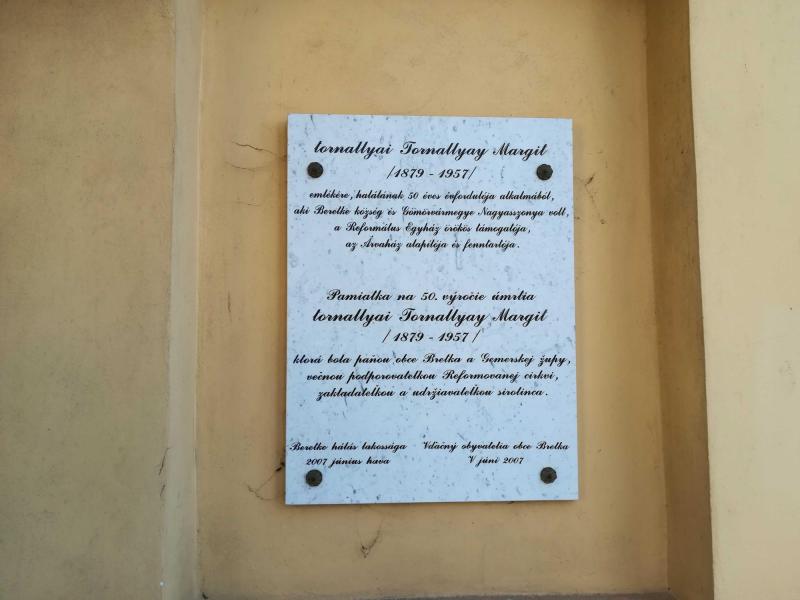 tornallyai Tornallyay Margit
/1879 - 1957/
emlékére, halálának 50 éves évfordulója alkalmából,
aki Beretke község és Gömörvármegye Nagyasszonya volt,
a Református Egyház örökös támogatója,
az Árvaház alapítója és fenntartója.
Pamiatka na 50. výročie úmrtia
tornallyai Tornallyay Margit
/ 1879 - 1957 /
ktorá bola paňou obce Bretka a Gemerskej župy,
večnou podporovateľkou Reformovanej cirkvi,
zakladateľkou a udržiavateľkou sirotinca.
Beretke hálás lakossága Vďačný obyvatelia obce Bretka
2007 június hava V júni 2007